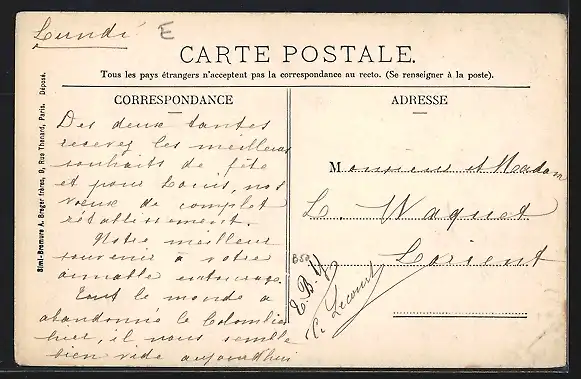 Lundi E
CARTE POSTALE.
Tous les pays étrangers n'acceptent pas la correspondance au recto. (Se renseigner à la poste).
CORRESPONDANCE
ADRESSE
Simi-Bromure A. Breger frères, 9, Rue Thenard, Paris. Déposé.
Des deux tantes
recevez les meilleurs
souhaits de fête
et pour Louis, nos
vœux de complet
rétablissement.
Notre meilleur
souvenir à votre
aimable entourage.
Tout le monde a
abandonné le Colombier
hier, il nous semble
bien vide aujourd'hui
Monsieur et Madame
L. Waquet
Lorient
E. B. V.
C. Lecourt